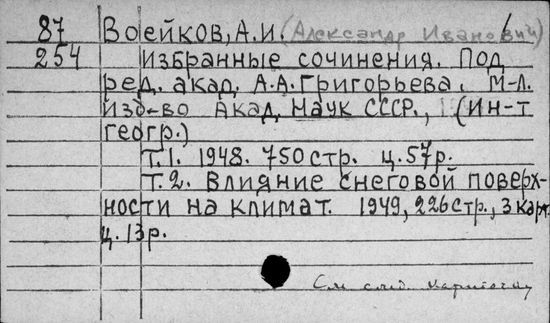 87 Воейков, А.И. (Александр Иванович)
254 Избранные сочинения. Под
ред. акад. А.А. Григорьева. М-Л.
Изд-во Акад. Наук СССР., (Ин-т
геогр.)
Т.1. 1948. 750 стр. ц.57р.
Т.2. Влияние снеговой поверх-
ности на климат. 1949, 226 стр., 3 карт.
ц.13р.
См след. карточку